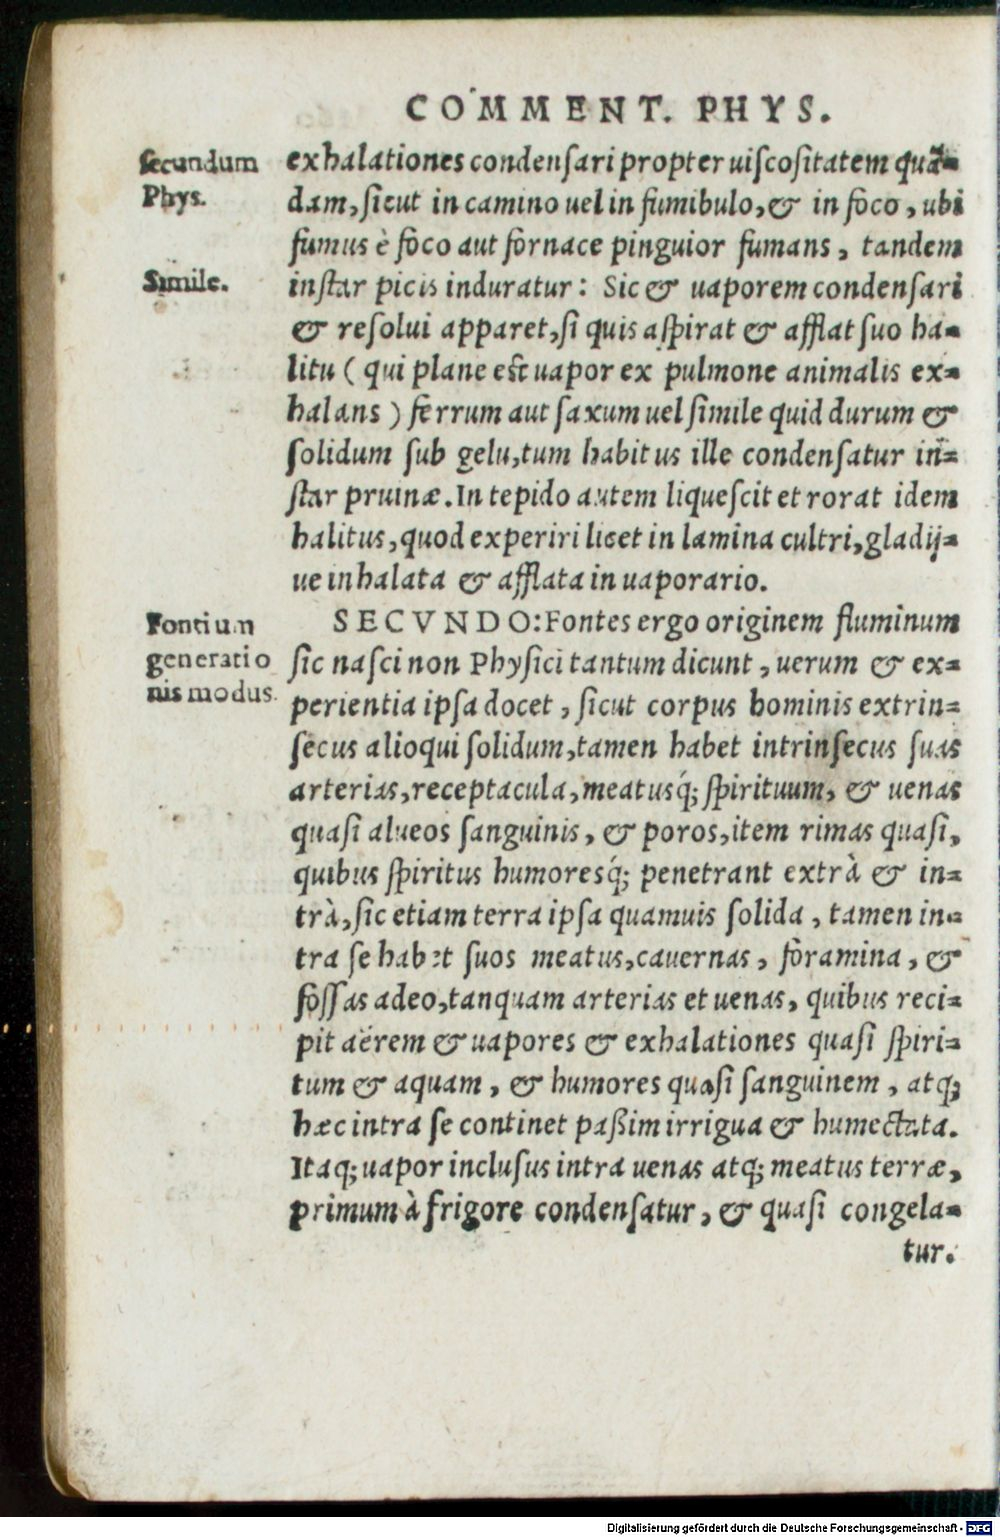 COMMENT. PHYS.
secundum
Phys.
exhalationes condensari propter uiscositatem quã-
dam, sicut in camino uel in fumibulo, & in foco, ubi
fumus è foco aut fornace pinguior fumans, tandem
Simile.
instar picis induratur: Sic & uaporem condensari
& resolui apparet, si quis aspirat & afflat suo ha-
litu ( qui plane est uapor ex pulmone animalis ex-
halans ) ferrum aut saxum uel simile quid durum &
solidum sub gelu, tum habitus ille condensatur in-
star pruinæ. In tepido autem liquescit et rorat idem
halitus, quod experiri licet in lamina cultri, gladij-
ue inhalata & afflata in uaporario.
Fontium
generatio
nis modus.
SECVNDO: Fontes ergo originem fluminum
sic nasci non Physici tantum dicunt, uerum & ex-
perientia ipsa docet, sicut corpus hominis extrin-
secus alioqui solidum, tamen habet intrinsecus suas
arterias, receptacula, meatusq́; spirituum, & uenas
quasi alueos sanguinis, & poros, item rimas quasi,
quibus spiritus humoresq́; penetrant extrà & in-
trà, sic etiam terra ipsa quamuis solida, tamen in-
tra se habet suos meatus, cauernas, foramina, &
fossas adeo, tanquam arterias et uenas, quibus reci-
pit aërem & uapores & exhalationes quasi spiri-
tum & aquam, & humores quasi sanguinem, atq;
hæc intra se continet paßim irrigua & humectata.
Itaq; uapor inclusus intra uenas atq; meatus terræ,
primum à frigore condensatur, & quasi congela-
tur.
Digitalisierung gefördert durch die Deutsche Forschungsgemeinschaft - DFG